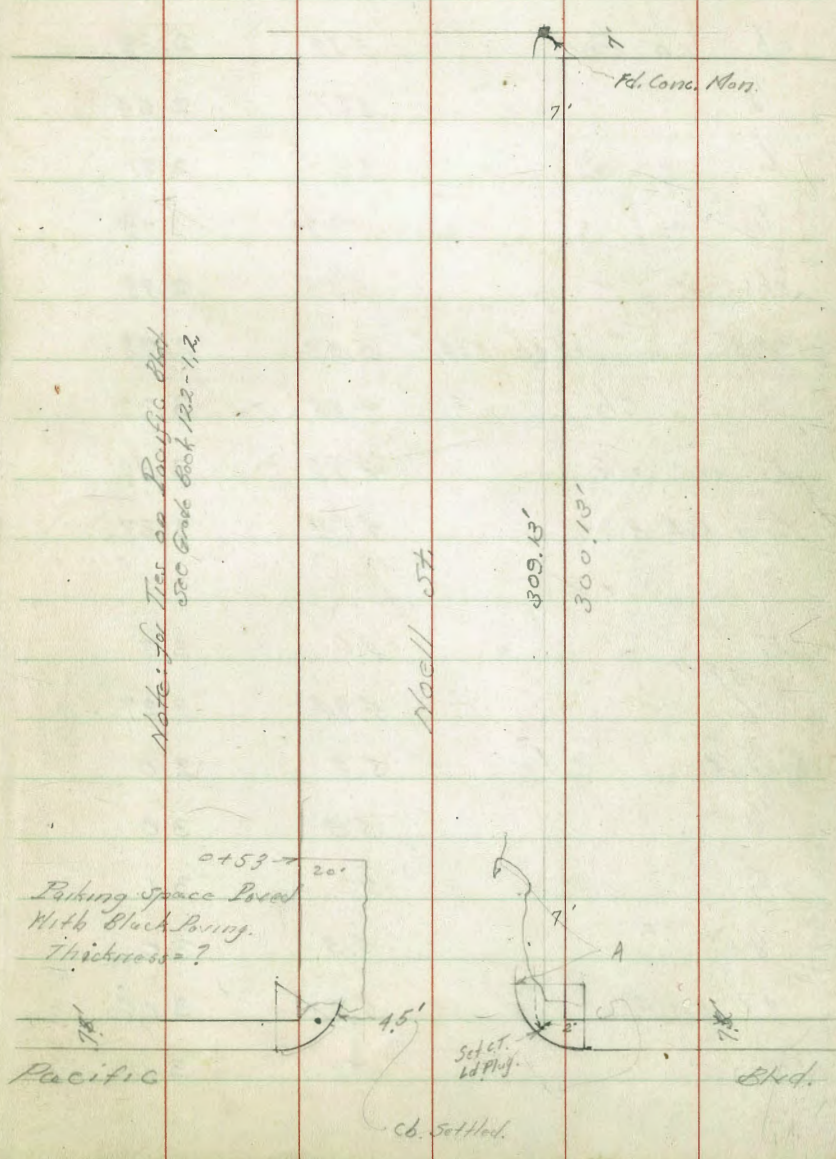 7'
Fd. Conc. Mon.
7'
Note: for Ties on Pacific Blvd
See Grade Book 122-1,2
309.13'
300.13'
Noell St.
0+53
20'
Parking Space Paved
With Black Paving.
Thickness = ?
7'
A
4.5'
2'
Set CT.
Ld Plug.
Pacific
Blvd.
Cb. Settled.